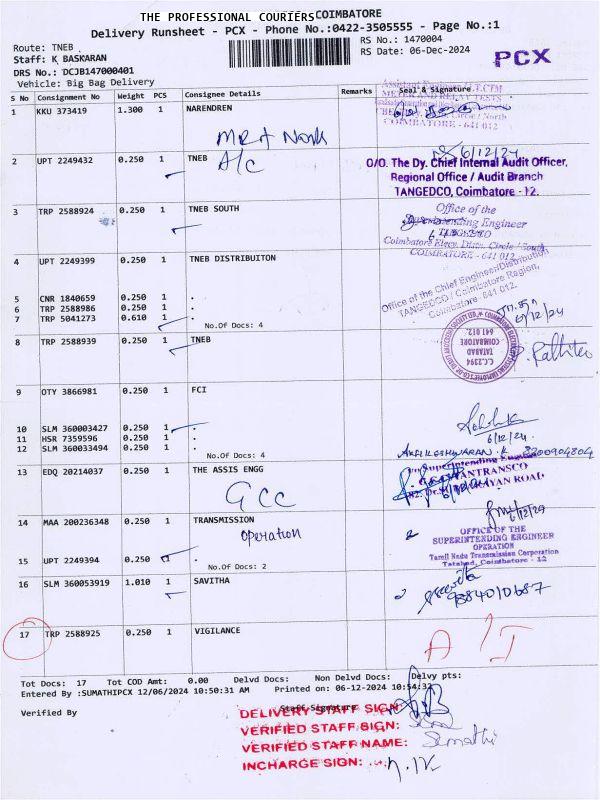 THE PROFESSIONAL COURIERS COIMBATORE
Delivery Runsheet - PCX - Phone No.:0422-3505555 - Page No.:1
Route: TNEB
Staff: K BASKARAN
RS No.: 1470004
RS Date: 06-Dec-2024
PCX
DRS No.: DCJB147000401
Vehicle: Big Bag Delivery
S No Consignment No Weight PCS Consignee Details Remarks Seal & Signature
1 KKU 373419 1.300 1 NARENDREN
COIMBATORE - 641 012
2 UPT 2249432 0.250 1 TNEB
A/c
6/12/24
O/O. The Dy. Chief Internal Audit Officer,
Regional Office / Audit Branch
TANGEDCO, Coimbatore - 12.
3 TRP 2588924 0.250 1 TNEB SOUTH
Office of the
Superintending Engineer
TANGEDCO
Coimbatore Elecy. Distn. Circle / South
COIMBATORE - 641 012
4 UPT 2249399 0.250 1 TNEB DISTRIBUITON
Office of the Chief Engineer/Distribution
TANGEDCO / Coimbatore Region,
Coimbatore- 641 012.
5 CNR 1840659 0.250 1 .
6 TRP 2588986 0.250 1 .
7 TRP 5041273 0.610 1 .
No.Of Docs: 4
6/12/24
8 TRP 2588939 0.250 1 TNEB
C.C.2394
TATABAD
COIMBATORE
641 012.
9 OTY 3866981 0.250 1 FCI
10 SLM 360003427 0.250 1 .
11 HSR 7359596 0.250 1 .
12 SLM 360033494 0.250 1 .
No.Of Docs: 4
6/12/24
13 EDQ 20214037 0.250 1 THE ASSIS ENGG
GCC
Superintending Engineer
14 MAA 200236348 0.250 1 TRANSMISSION
Operation
6/12/24
OFFICE OF THE
SUPERINTENDING ENGINEER
OPERATION
Tamil Nadu Transmission Corporation
Tatabad, Coimbatore - 12
15 UPT 2249394 0.250 1 .
No.Of Docs: 2
16 SLM 360053919 1.010 1 SAVITHA
17 TRP 2588925 0.250 1 VIGILANCE
Tot Docs: 17 Tot COD Amt: 0.00 Delvd Docs: Non Delvd Docs: Delvy pts:
Entered By :SUMATHIPCX 12/06/2024 10:50:31 AM Printed on: 06-12-2024 10:54:32
Verified By Staff Signature
DELIVERY STAFF SIGN:
VERIFIED STAFF SIGN:
VERIFIED STAFF NAME: Sumathi
INCHARGE SIGN: